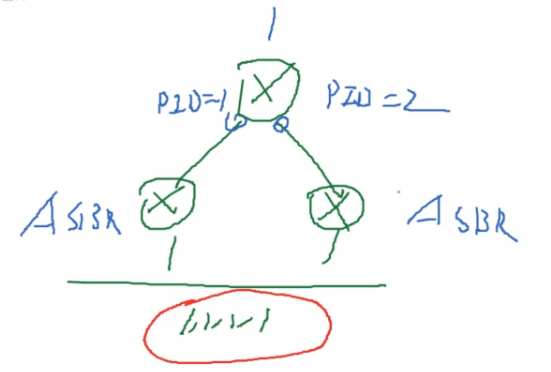 1
PID=1 PID=2
ASBR ASBR
1.1.1.1